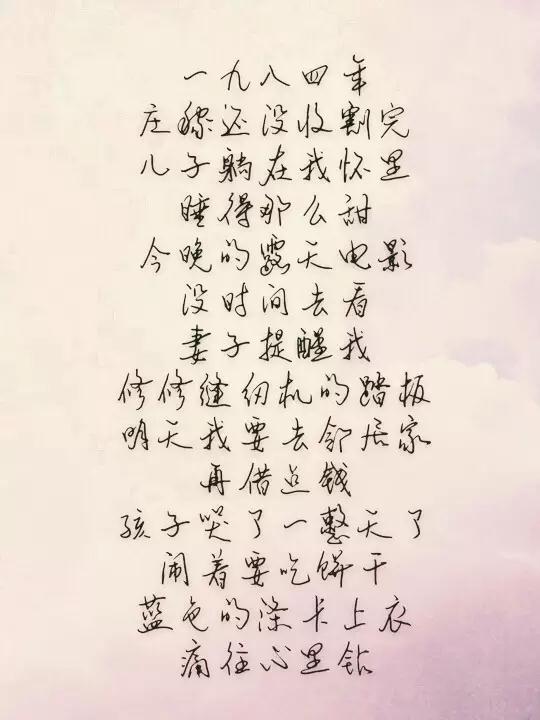 一九八四年
庄稼还没收割完
儿子躺在我怀里
睡得那么甜
今晚的露天电影
没时间去看
妻子提醒我
修修缝纫机的踏板
明天我要去邻居家
再借点钱
孩子哭了一整天了
闹着要吃饼干
蓝色的涤卡上衣
痛往心里钻